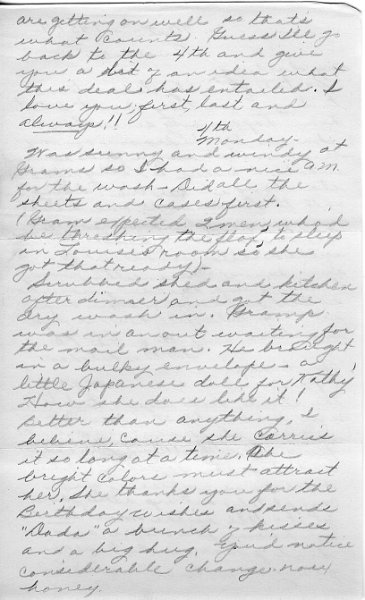 are getting on well so that's
what counts. Guess I'll go
back to the 4th and give
you a bit of an idea what
this deal has entailed. I
love you first, last and
always!!
4th
Monday -
Was sunny and windy at
Grams so I had a nice a.m.
for the wash - Did all the
sheets and cases first.
(Gram expected 2 men, who'd
be threshing the flax, to sleep
in Louise's room so she
got that ready) -
Scrubbed shed and kitchen
after dinner and got the
dry wash in. Gramp
was in an out waiting for
the mail man. He brought
in a bulky envelope - a
little Japanese doll for Kathy!
How she does like it!
Better than anything, I
believe, cause she carries
it so long at a time. The
bright colors must attract
her. She thanks you for the
Birthday wishes and sends
"Dada" a bunch of kisses
and a big hug. You'd notice
considerable change now
honey.